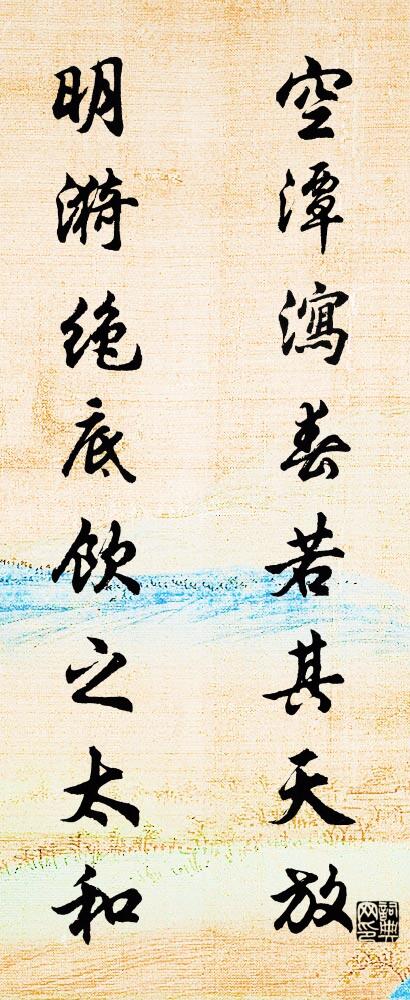 空潭瀉春若其天放
明漪绝底飲之太和
詞典网印